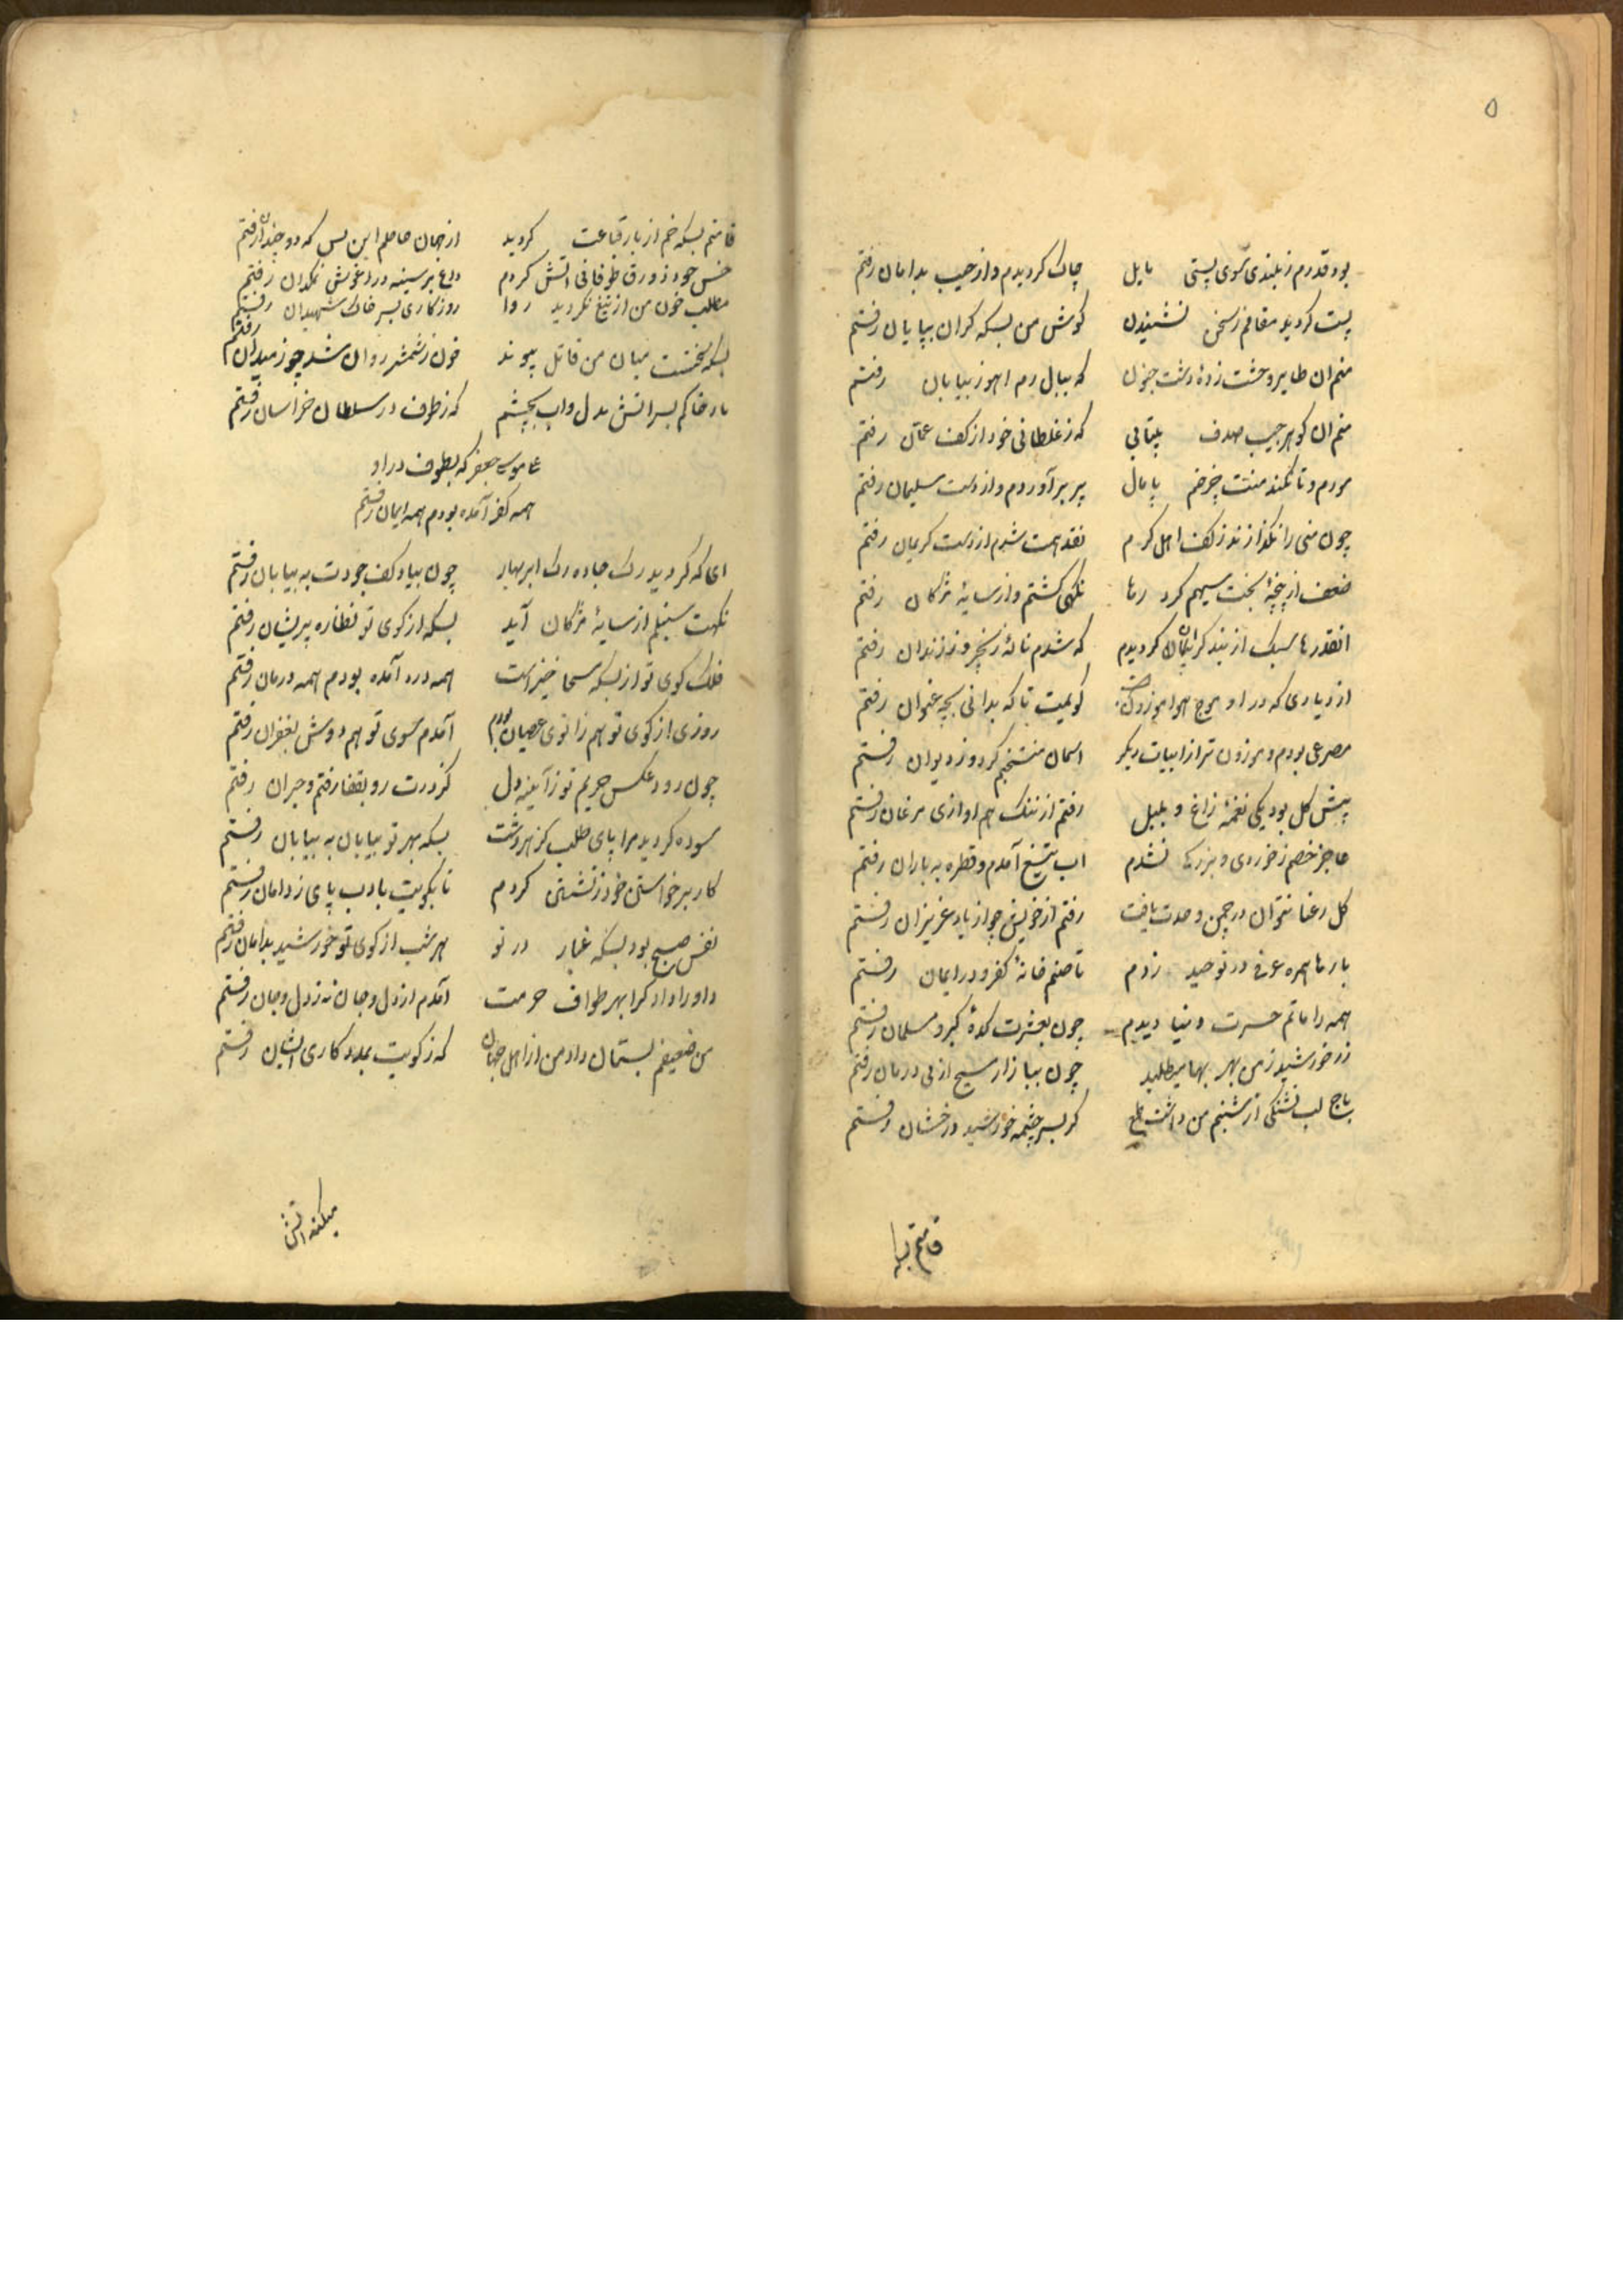 ۵
بود قدرم ز بلندی سوی پستی مایل چاک کردیدم و از جیب بدامان رفتم
پست کردید مقالم ز سخن نشنیدن کوش من بسکه کران بپایان رفتم
منم ان طایر وحشت زدهٔ دشت جنون که ببال رم اهو ز بیابان رفتم
منم ان کوهر جیب صدف بیتابی که ز غلطانی خود از کف عمان رفتم
مورم و تا نکند منت چرخم پامال پر برآوردم و از دست سلیمان رفتم
چون منی را نکذارند ز کف اهل کرم نقد همت شدم از دست کریمان رفتم
ضعف از پنجهٔ بخت سیهم کرد رها نکهی کشتم و از سایهٔ مژکان رفتم
انقدرها سبک از بند کرانجان کردیدم که شدم نالهٔ زنجیر و ز زندان رفتم
از دیاری که در او موج هوا کویمت تا که بدانی بچه عنوان رفتم
مصرعی بودم و موزون تر از ابیات دیکر اسمان منتخبم کرد و ز دیوان رفتم
پیش کل بود یکی نغمهٔ زاغ و بلبل رفتم از ننک هم اوازی مرغان رفتم
عاجز خصم ز خوردی و بزرکی نشدم اب تیغ آمدم و قطره به باران رفتم
کل رعنا نتوان در چمن وحدت یافت رفتم از خویش چو از یاد عزیزان رفتم
بارها همره عرفی در توحید زدم تا صنم خانهٔ کفر و در ایمان رفتم
همه را ماتم حسرت دنیا دیدم چون بعشرت کدهٔ کبر و مسلمان رفتم
زر خورشید ز من بهر بها میطلبد چون ببازار مسیح از پی درمان رفتم
باج لب تشنکی از شبنم من داشت طمع کر بسر چشمه خورشید درخشان رفتم
قامتم بسکه
قامتم بسکه خم از بار قناعت کردید از جهان حاصلم این بس که دو چندان رفتم
خس خود زورق طوفانی اتش کردم داغ بر سینه در اغوش نمکدان رفتم
مطلب خون من از تیغ نکردید روا روزکاری بسر خاک شهیدان رفتم
بسکه میان من قاتل پیوند خون ز شمشیر روان شد چو ز میدان رفتم
باد خاکم بسر اتش بدل و اب بچشم که ز طرف در سلطان خراسان رفتم
موسی جعفر که بطوف در او
همه کفر آمده بودم همه ایمان رفتم
ای که کردید رک جاده رک ابر بهار چون بیاد کف جودت به بیابان رفتم
نکهت سنبلم از سایهٔ مژکان آید بسکه از کوی تو نظاره پریشان رفتم
فلک کوی تو از بسکه مسحا خیز است همه درد آمده بودم همه درمان رفتم
روزی از کوی تو هم زانوی عصیان بودم آمدم سوی تو هم دوش بغفران رفتم
چون رود عکس حریم تو ز آیینه دل کز درت رو بقفا رفتم و حیران رفتم
سوده کردید مرا پای طلب کز هر دشت بسکه بهر تو بیابان به بیابان رفتم
کار برخواستن خود ز نشستن کردم تا بکویت بادب پای ز دامان رفتم
نفس صبح بود بسکه غبار در تو هر شب از کوی تو خورشید بدامان رفتم
داورا دادکرا بهر طواف حرمت آمدم از دل و جان نه ز دل و جان رفتم
من ضعیفم بستان داد من از اهل جهان که ز کویت بمددکاری ایشان رفتم
میکند اتش